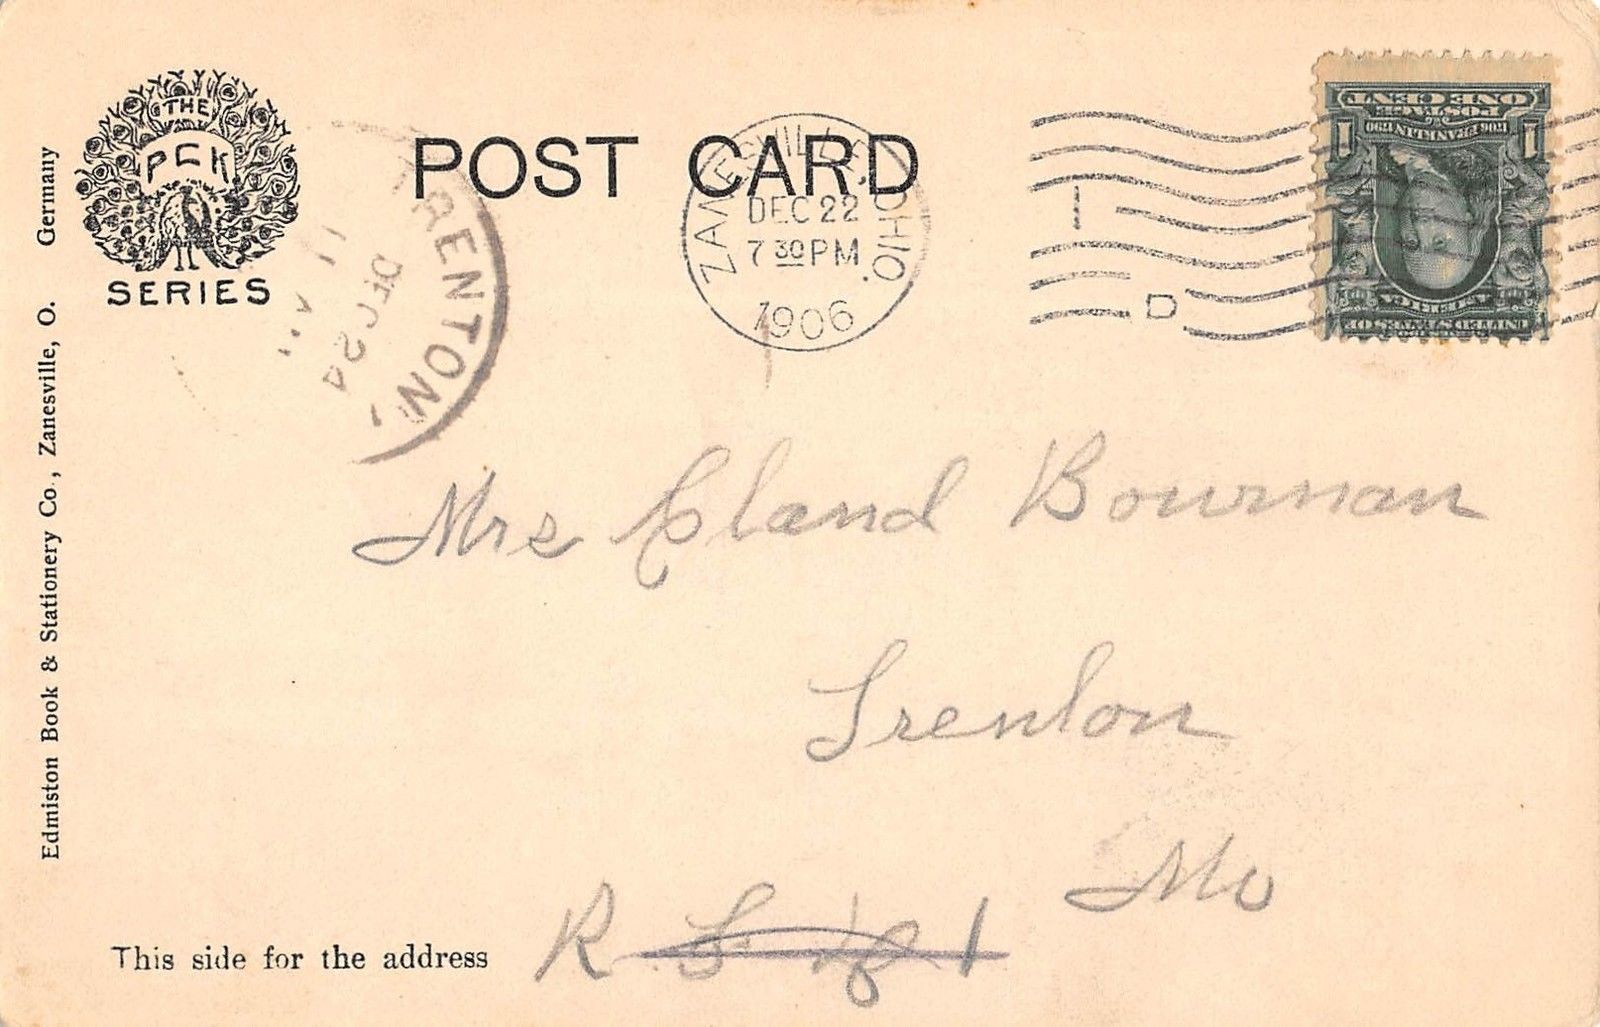 THE
PCK
SERIES
POST CARD
ZANESVILLE, OHIO.
DEC 22
7 30 PM
1906
TRENTON,
DEC 24
I
D
ONE CENT
POSTAGE
1706 FRANKLIN 1790
1 1
AMERICA
UNITED STATES OF
Germany
Edmiston Book & Stationery Co., Zanesville, O.
Mrs Cland Bowman
Trenton
Mo
R
1
This side for the address